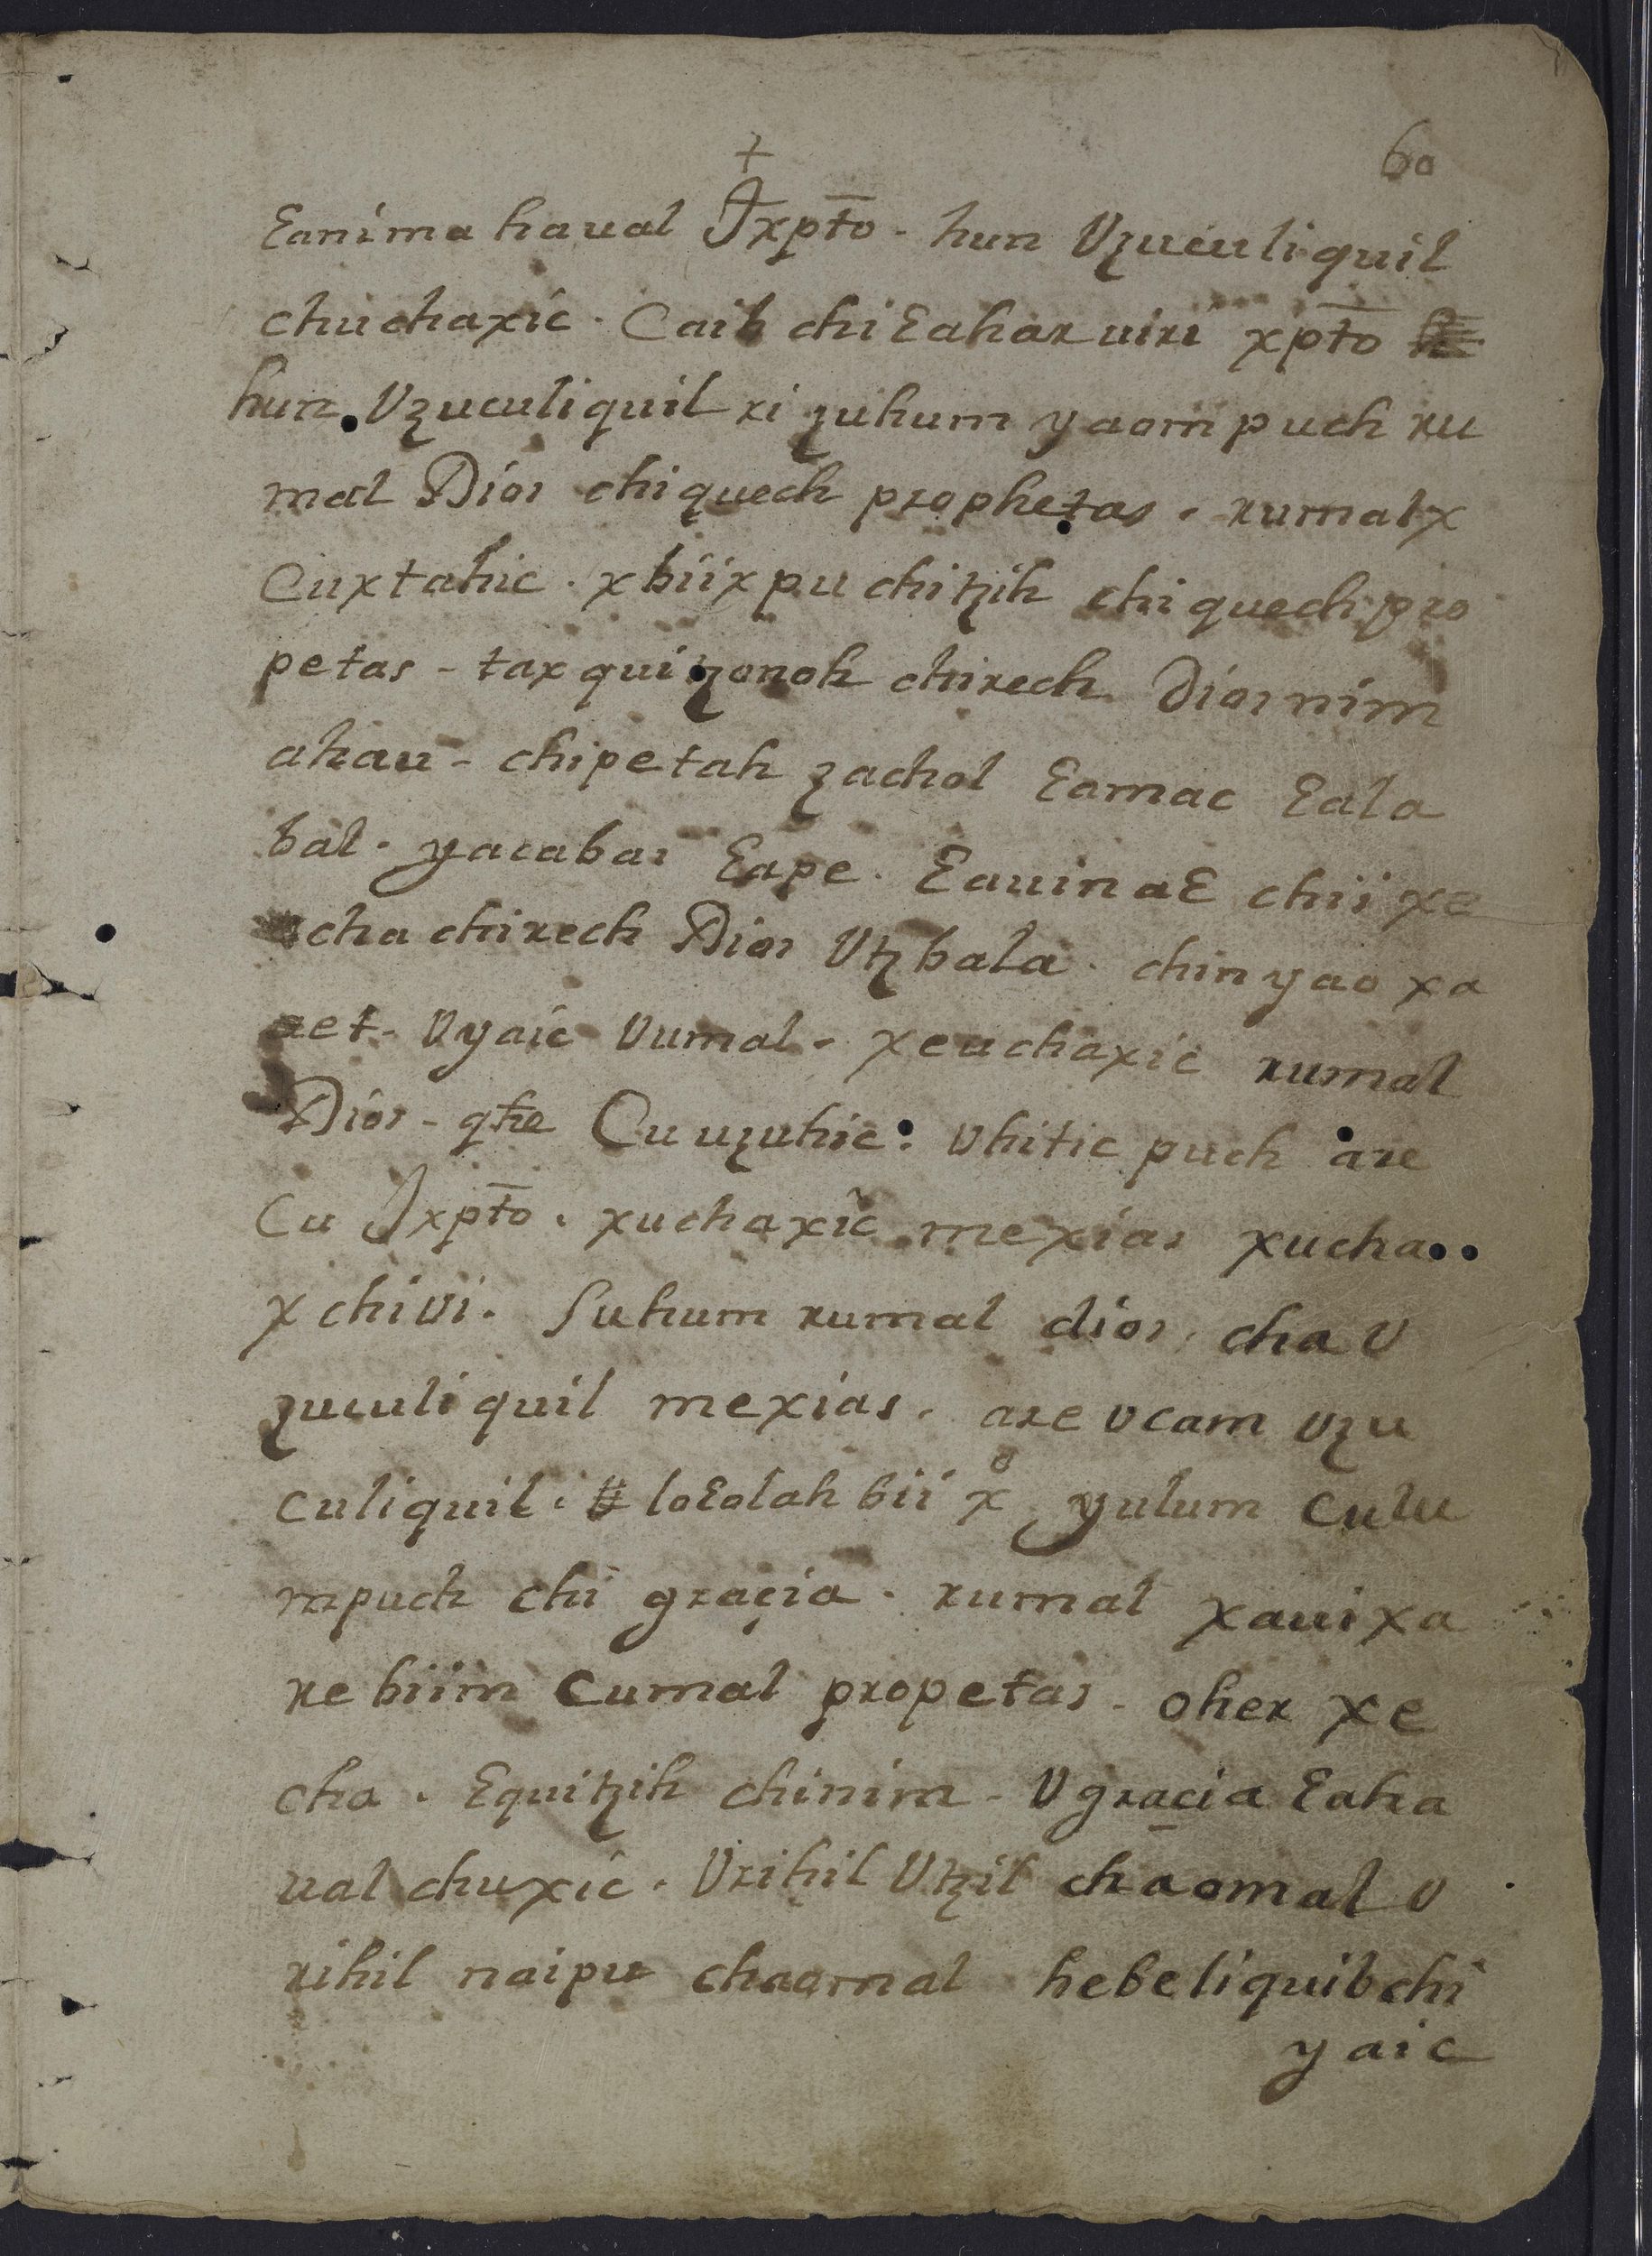 +
60
Ɛanima haual Jxpt̄o - hun Vzuculi quil
chuchaxic . Caib chi Ɛahar uiri xpt̄o
hun Vzuculiquil ri zuhum yaom puch ru
mal Dios chi quech prophetas . rumal x
Cuxtahic . xbiix pu chi tzih chi quech pro
petas - tax qui tzonoh chirech Dios nim
ahau - chipetah zachol Ɛamac Ɛala
bal . yacabas Ɛape . ƐauinaƐ chii xe
cha chirech Dios Vtzbala . chin yao xa
aet - Vyaic Vumal . xeuchaxic rumal
Dios - qħe Cu uzuhic : Vhitic puch are
Cu Jxpt̄o . xuchaxic mexias xucha
x chivi . Suhum rumal dios , cha V
zuculi quil mexias . are vcam vzu
culiquil . loƐolah bii xº yulum culu
mpuch chi graçia . rumal xauixa
re biim Cumal propetas - oher xe
cha . Ɛquitzih chinim - V gracia Ɛaha
ual chuxic . Vrihil Vtzil chaomal V
rihil naipu chaomal hebeliquib chi
yaic